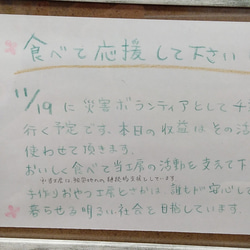 食べて応援して下さい
11/19に災害ボランティアとしてチ
行く予定です。本日の収益はその活
使わせて頂きます。
おいしく食べて当工房の活動を支えて下
手作りおやつ工房とさかは誰もが安心し
暮らせる明るい社会を目指しています。